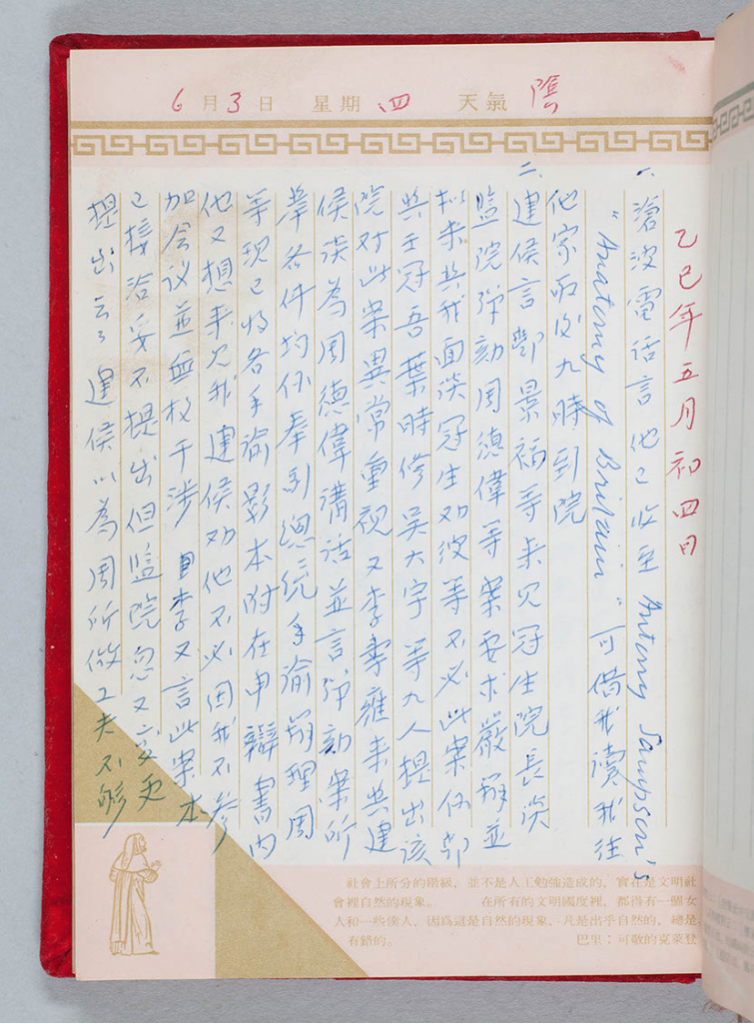 6月3日 星期四 天氣 陰
乙巳年五月初四日
一、滄波電話言他已收至 Antony Sampson's
"Anatomy of Britain" 可借我讀我往
他家取後九時到院
二、建侯言鄧景福等來見冠生院長談
監院彈劾周德偉等案要求嚴辦並
擬來與我面談冠生勸彼等不必此案係鄧
與王冠吾葉時修吳大宇等九人提出該
院對此案異常重視又李壽雍來與建
侯談為周德偉講話並言彈劾案所
舉各件均係奉到總統手諭辦理周
等現已將各手諭影本附在申辯書内
他又想來見我建侯勸他不必因我不參
加會议並無权干涉 李又言此案本
已接洽妥不提出但監院忽又變更
提出云云 建侯以為周所做工夫不够
社會上所分的階級，並不是人工勉強造成的，實在是文明社
會裡自然的現象。 在所有的文明國度裡，都得有一個女
人和一些僕人，因爲這是自然的現象，凡是出乎自然的，總是
有錯的。 巴里：可敬的克萊登